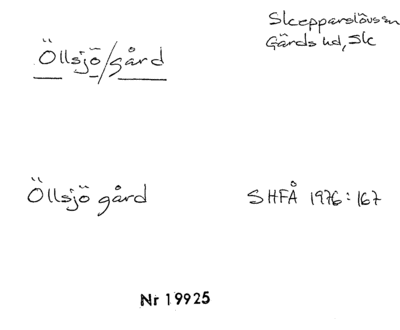 Skepparslövs sn
Gärds hd, Sk
Öllsjö/gård
Öllsjö gård
SHFÅ 1976:167
Nr 19925